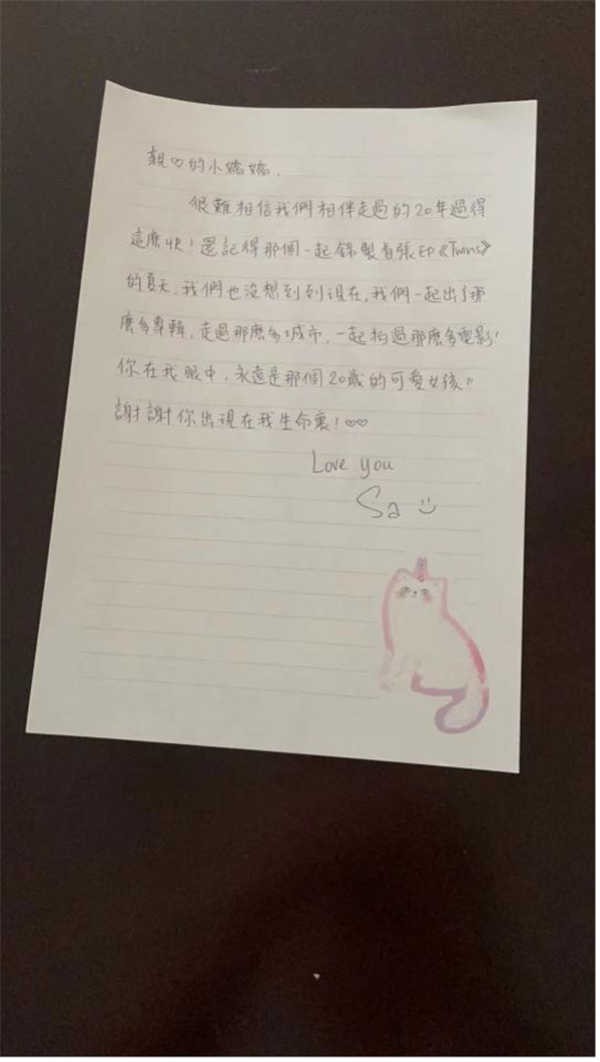 親♡的小嬌嬌，
很難相信我們相伴走過的20年過得
這麼快！還記得那個一起錄製首張EP《Twins》
的夏天，我們也沒想到到現在，我們一起出了那
麼多專輯，走過那麼多城市，一起拍過那麼多電影，
你在我眼中，永遠是那個20歲的可愛女孩。
謝謝你出現在我生命裏！♡♡
Love you
Sa